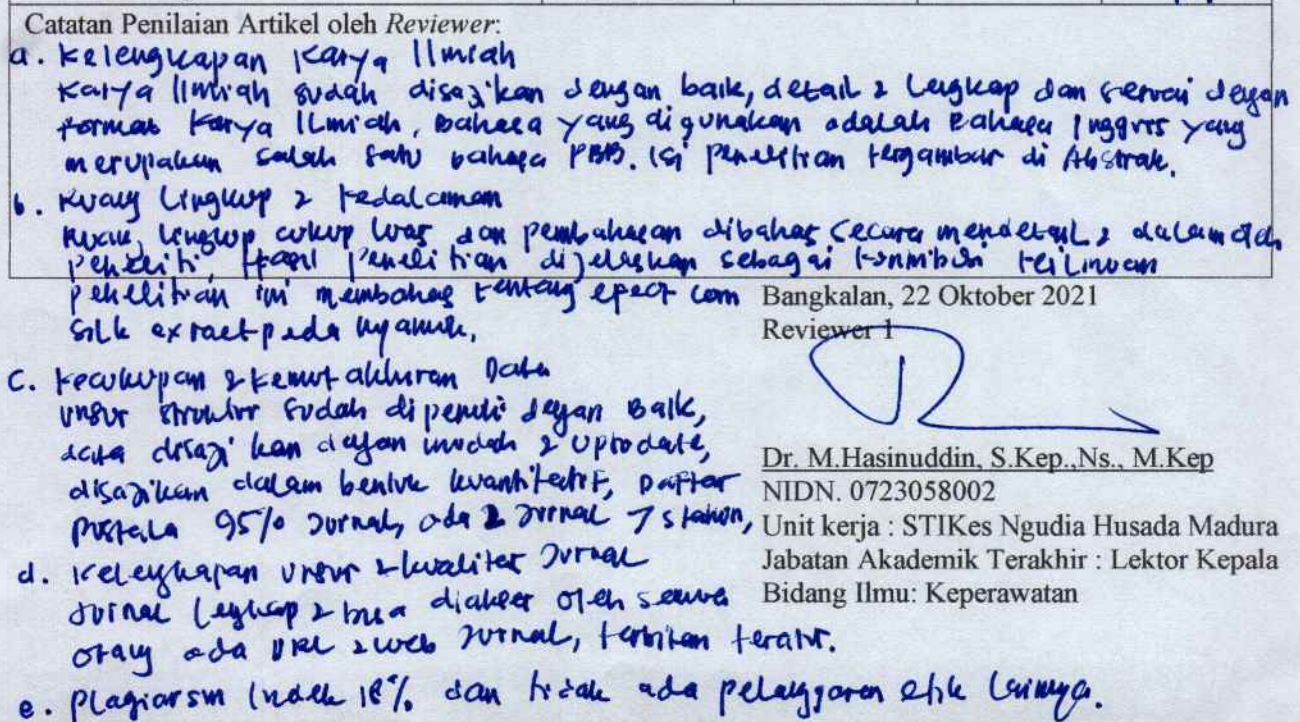 Catatan Penilaian Artikel oleh Reviewer:
a. Kelengkapan Karya Ilmiah
Karya Ilmiah sudah disajikan dengan baik, detail & Lengkap dan sesuai dengan
format Karya ILmiah, Bahasa yang digunakan adalah Bahasa Inggris yang
merupakan salah satu bahasa PBB. Isi penelitian tergambar di Abstrak.
b. Ruang Lingkup & Kedalaman
Ruang Lingkup cukup luas dan pembahasan dibahas secara mendetail & dalam oleh
peneliti, Hasil penelitian dijelaskan sebagai kontribusi keilmuan
penelitian ini membahas tentang efect corn
silk exract pada nyamuk.
C. Kecukupan & Kemutakhiran Data
unsur struktur sudah dipenuhi dengan Baik,
data disajikan dengan mudah & Uptodate,
disajikan dalam bentuk kuantitatif, Daftar
pustaka 95% Jurnal, ada 2 Jurnal > 5 tahun,
d. Kelengkapan unsur & kualitas Jurnal
Jurnal Lengkap & bisa diakses oleh semua
orang ada URL & web Jurnal, terbitan teratur.
e. Plagiarsm Indek 18% dan tidak ada pelanggaran etik lainnya.
Bangkalan, 22 Oktober 2021
Reviewer 1
Dr. M.Hasinuddin, S.Kep.,Ns., M.Kep
NIDN. 0723058002
Unit kerja : STIKes Ngudia Husada Madura
Jabatan Akademik Terakhir : Lektor Kepala
Bidang Ilmu: Keperawatan